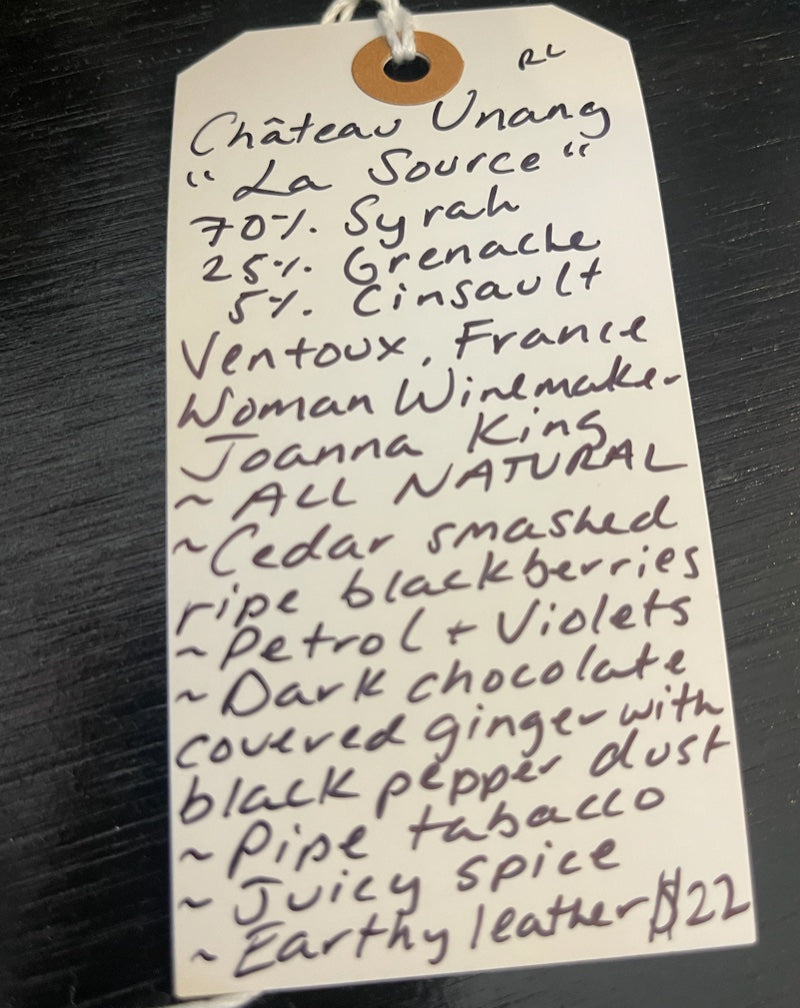 RL
Château Unang
"La Source"
70% Syrah
25% Grenache
5% Cinsault
Ventoux, France
Woman Winemaker
Joanna King
~ ALL NATURAL
~ Cedar smashed
ripe blackberries
~ Petrol + Violets
~ Dark chocolate
covered ginger with
black pepper dust
~ Pipe tabacco
~ Juicy spice
~ Earthy leather $22